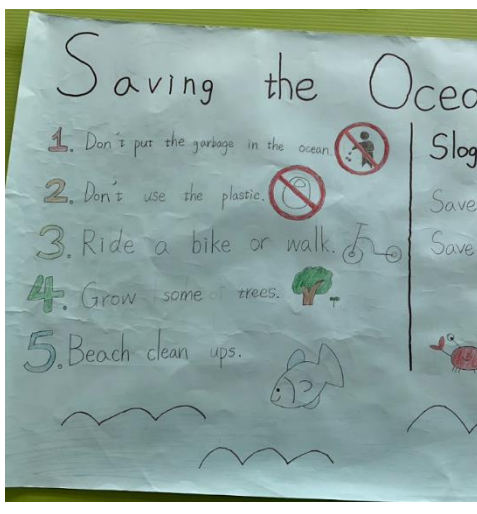 Saving the Ocea
1. Don't put the garbage in the ocean.
2. Don't use the plastic.
3. Ride a bike or walk.
4. Grow some trees.
5. Beach clean ups.
Slog
Save
Save